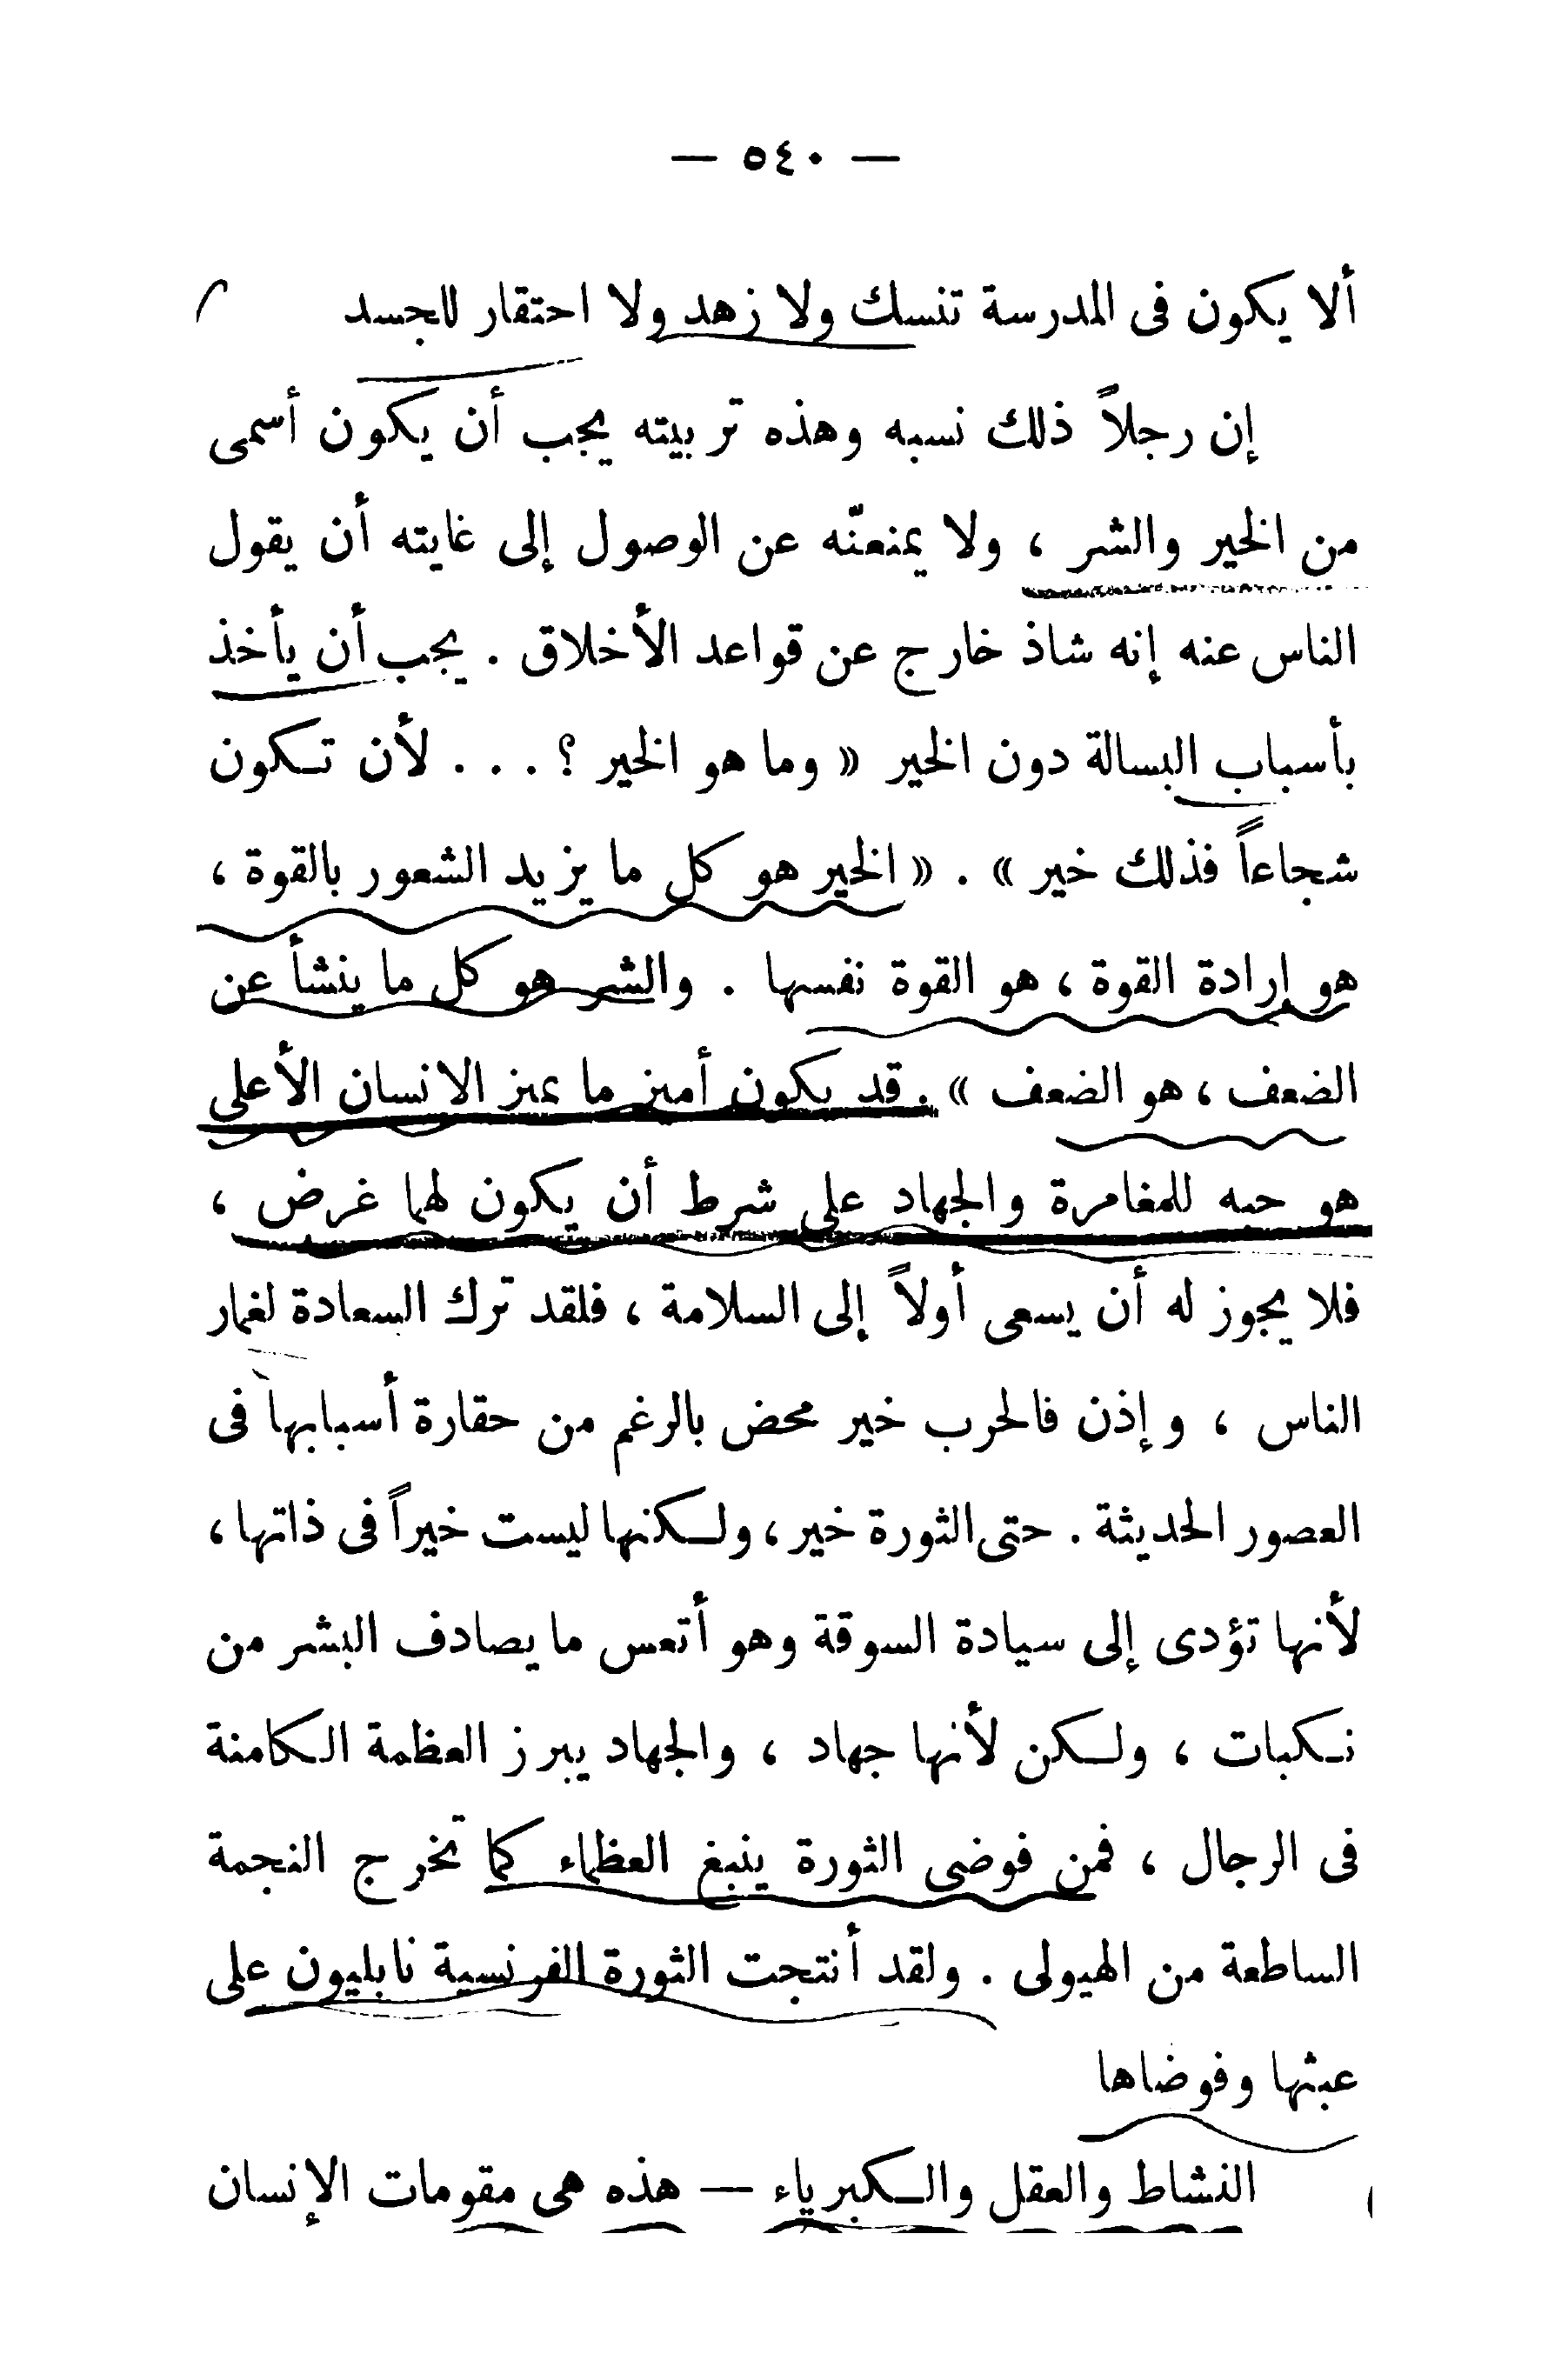 — ٥٤٠ —
ألا يكون فى المدرسة تنسك ولا زهد ولا احتقار للجسد
إن رجلاً ذلك نسبه وهذه تربيته يجب أن يكون أسمى
من الخير والشر ، ولا يمنعنّه عن الوصول إلى غايته أن يقول
الناس عنه إنه شاذ خارج عن قواعد الأخلاق . يجب أن يأخذ
بأسباب البسالة دون الخير « وما هو الخير ؟ . . . لأن تكون
شجاعاً فذلك خير » . « الخير هو كل ما يزيد الشعور بالقوة ،
هو إرادة القوة ، هو القوة نفسها . والشر هو كل ما ينشأ عن
الضعف ، هو الضعف » . قد يكون أميز ما يميز الانسان الأعلى
هو حبه للمغامرة والجهاد على شرط أن يكون لهما غرض ،
فلا يجوز له أن يسعى أولاً إلى السلامة ، فلقد ترك السعادة لغمار
الناس ، وإذن فالحرب خير محض بالرغم من حقارة أسبابها فى
العصور الحديثة . حتى الثورة خير ، ولكنها ليست خيراً فى ذاتها ،
لأنها تؤدى إلى سيادة السوقة وهو أتعس ما يصادف البشر من
نكبات ، ولكن لأنها جهاد ، والجهاد يبرز العظمة الكامنة
فى الرجال ، فمن فوضى الثورة ينبغ العظماء كما تخرج النجمة
الساطعة من الهيولى . ولقد أنتجت الثورة الفرنسية نابليون على
عبثها وفوضاها
النشاط والعقل والكبرياء — هذه هى مقومات الإنسان